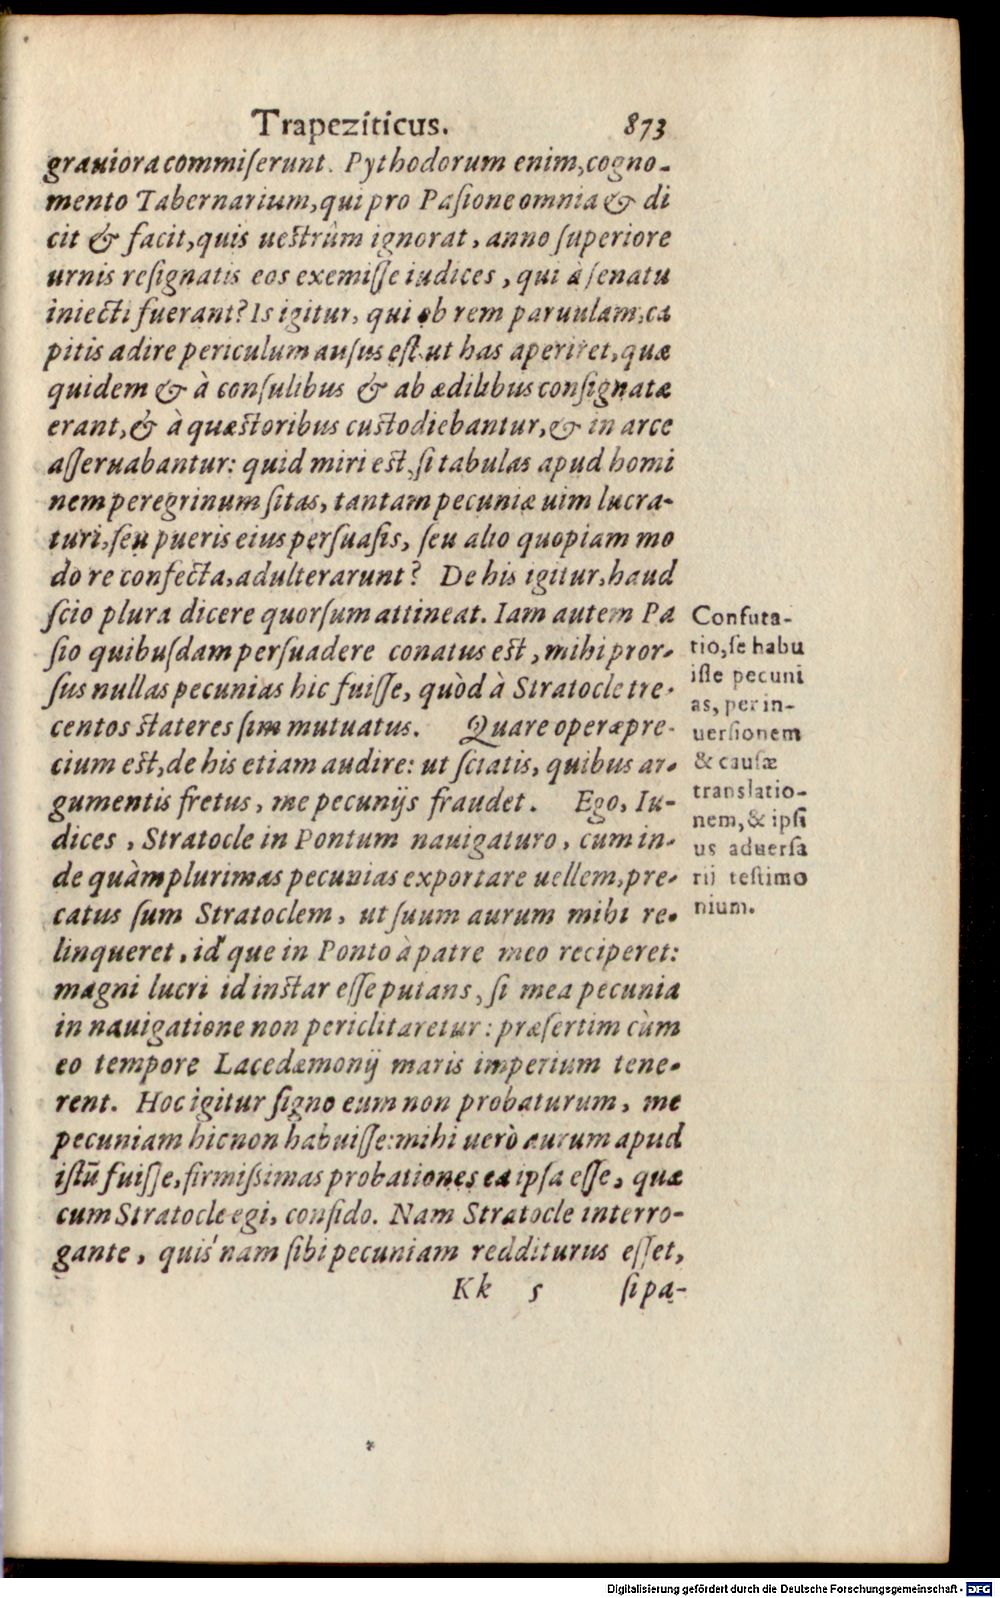 Trapeziticus. 873
grauiora commiſerunt. Pythodorum enim, cogno-
mento Tabernarium, qui pro Paſione omnia & di
cit & facit, quis ueſtrûm ignorat, anno ſuperiore
urnis reſignatis eos exemiſſe iudices, qui à ſenatu
iniecti fuerant? Is igitur, qui ob rem paruulam, ca
pitis adire periculum auſus eſt ut has aperiret, quæ
quidem & à conſulibus & ab ædilibus conſignatæ
erant, & à quæſtoribus cuſtodiebantur, & in arce
aſſeruabantur: quid miri eſt, ſi tabulas apud homi
nem peregrinum ſitas, tantam pecuniæ uim lucra-
turi, ſeu pueris eius perſuaſis, ſeu alio quopiam mo
do re confecta, adulterarunt? De his igitur, haud
ſcio plura dicere quorſum attineat. Iam autem Pa
ſio quibuſdam perſuadere conatus eſt, mihi pror-
ſus nullas pecunias hic fuiſſe, quòd à Stratocle tre-
centos ſtateres ſim mutuatus. Quare operæpre-
cium eſt, de his etiam audire: ut ſciatis, quibus ar-
gumentis fretus, me pecunijs fraudet. Ego, Iu-
dices, Stratocle in Pontum nauigaturo, cum in-
de quàm plurimas pecunias exportare uellem, pre-
catus ſum Stratoclem, ut ſuum aurum mihi re-
linqueret, id'que in Ponto à patre meo reciperet:
magni lucri id inſtar eſſe putans, ſi mea pecunia
in nauigatione non periclitaretur: præſertim cùm
eo tempore Lacedæmonij maris imperium tene-
rent. Hoc igitur ſigno eum non probaturum, me
pecuniam hic non habuiſſe: mihi uerò aurum apud
iſtũ fuiſſe, firmiſsimas probationes ea ipſa eſſe, quæ
cum Stratocle egi, confido. Nam Stratocle interro-
gante, quis'nam ſibi pecuniam redditurus eſſet,
Kk 5 ſi pa-
Confuta-
tio, ſe habu
iſſe pecuni
as, per in-
uerſionem
& cauſæ
translatio-
nem, & ipſi
us aduerſa
rii teſtimo
nium.
Digitalisierung gefördert durch die Deutsche Forschungsgemeinschaft - DFG